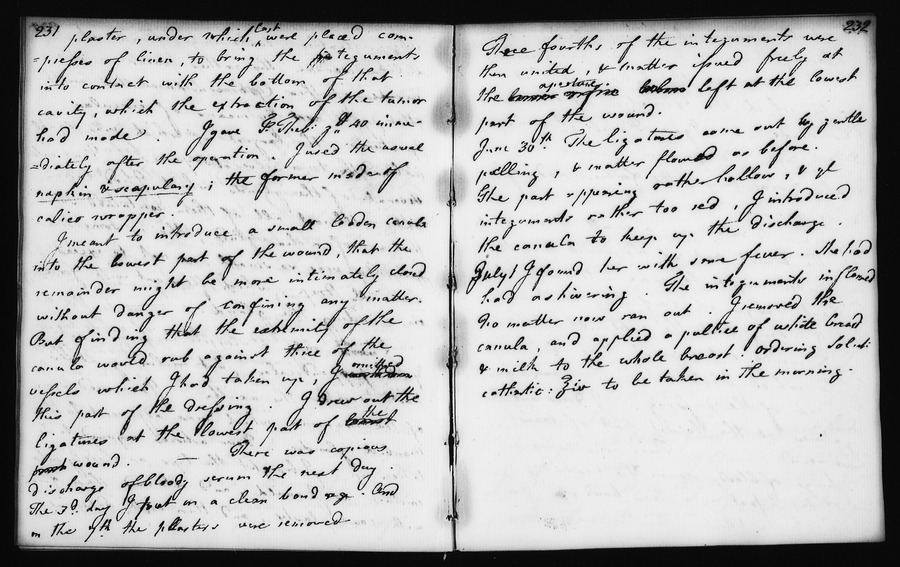 231
plaster, under which last were placed com-
=presses of linen, to bring the integuments
into contact with the bottom of that
cavity, which the extraction of the tumor
had made. I gave 40 imme-
=diately after the operation. I used the usual
napkin & scapulary; the former made of
calico wrapper.
I meant to introduce a small leaden canula
into the lowest part of the wound, that the
remainder might be more intimately closed
without danger of confining any matter.
But finding that the extremity of the
canula would rub against three of the
vessels which I had taken up, I omitted
this part of the dressing. I drew out the
ligatures at the lowest part of the
wound. — There was copious
discharge of bloody serum the next day.
The 3d. day I put on a clean bandage. And
on the 7th. the plasters were removed
232
Three fourths of the integuments were
then united, & matter issued freely at
the aperture left at the lowest
part of the wound.
June 30th The ligatures came out by gentle
pulling, & matter flowed as before.
The part appearing rather hollow, & ye
integuments rather too red, I introduced
the canula to keep up the discharge.
July 1 I found her with some fever. She had
had a shivering. The integuments inflamed
No matter now ran out. I removed the
canula, and applied a pultice of white bread
& milk to the whole breast. ordering
cathartic. to be taken in the morning.